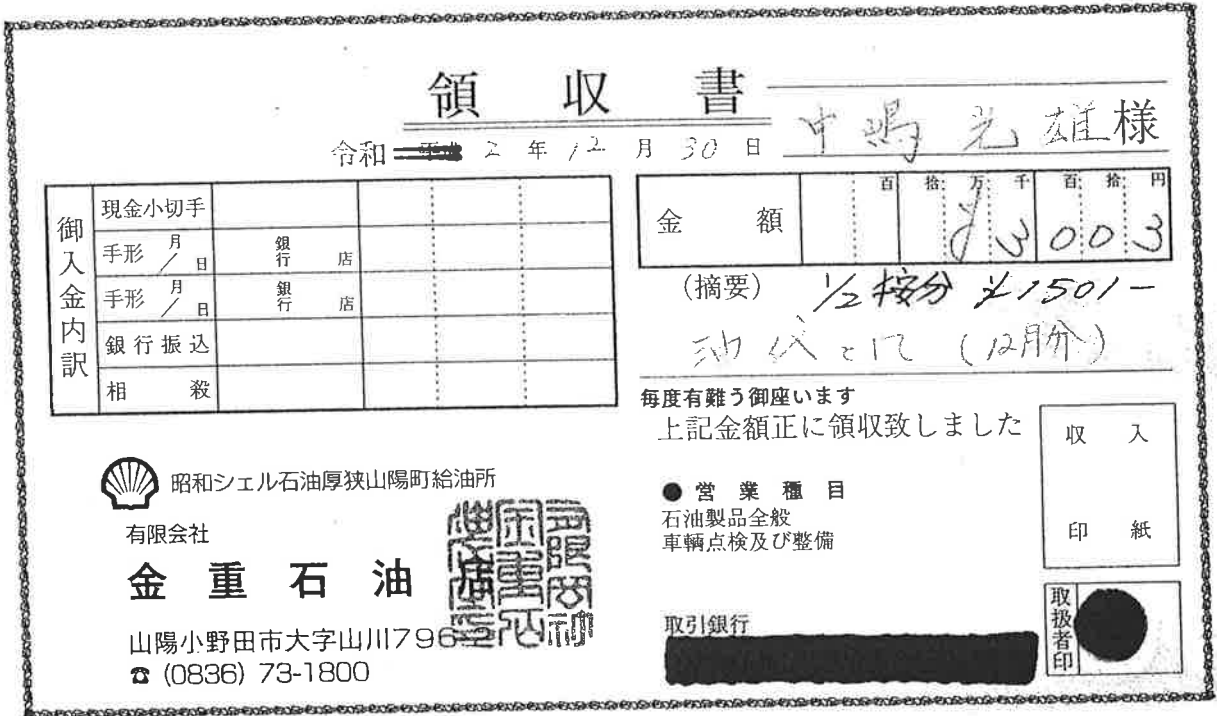 領収書
中嶋光雄様
令和 2年12月30日
御入金内訳
現金小切手
手形 月/日 銀行 店
手形 月/日 銀行 店
銀行振込
相殺
金額 百拾万千百拾円
¥3003
(摘要) 1/2按分 ¥1501-
油代として (12月分)
毎度有難う御座います
上記金額正に領収致しました
収入
印紙
昭和シェル石油厚狭山陽町給油所
有限会社
金重石油店
山陽小野田市大字山川796
☎ (0836) 73-1800
●営業種目
石油製品全般
車輌点検及び整備
取引銀行
取扱者印